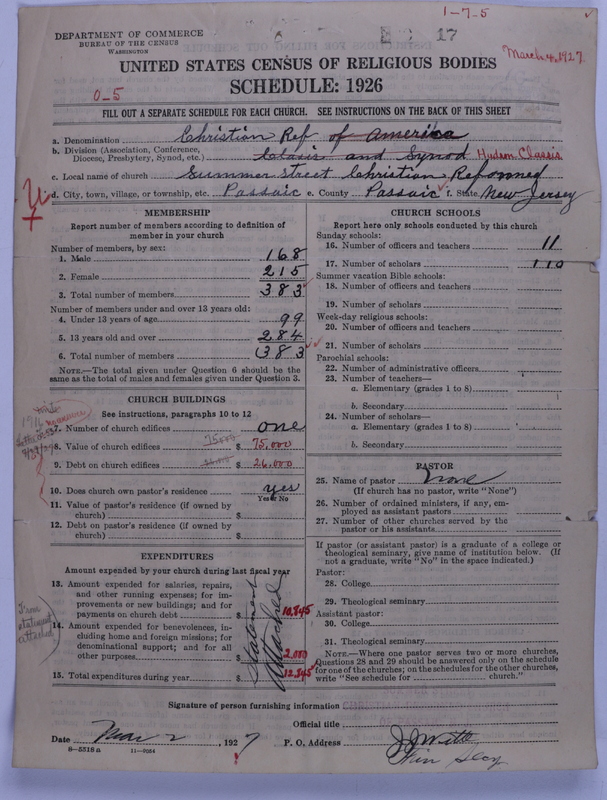 1-7-5
DEPARTMENT OF COMMERCE
BUREAU OF THE CENSUS
WASHINGTON
17
March 4, 1927
UNITED STATES CENSUS OF RELIGIOUS BODIES
SCHEDULE: 1926
0-5
FILL OUT A SEPARATE SCHEDULE FOR EACH CHURCH. SEE INSTRUCTIONS ON THE BACK OF THIS SHEET
a. Denomination Christian Ref of America
b. Division (Association, Conference, Diocese, Presbytery, Synod, etc.) Clasis and Synod Hudson Classis
c. Local name of church Summer Street Christian Reformed
d. City, town, village, or township, etc. Passaic e. County Passaic f. State New Jersey
MEMBERSHIP
Report number of members according to definition of
member in your church
Number of members, by sex:
1. Male 168
2. Female 215
3. Total number of members 383
Number of members under and over 13 years old:
4. Under 13 years of age 99
5. 13 years old and over 284
6. Total number of members 383
NOTE.—The total given under Question 6 should be
same as the total of males and females given under Question 3.
CHURCH BUILDINGS
See instructions, paragraphs 10 to 12
7. Number of church edifices one
75,000
8. Value of church edifices $ 75,000
9. Debt on church edifices $ 26,000
10. Does church own pastor's residence yes
Yes or No
11. Value of pastor's residence (if owned by
church) $
12. Debt on pastor's residence (if owned by
church) $
EXPENDITURES
Amount expended by your church during last fiscal year
13. Amount expended for salaries, repairs,
and other running expenses; for im-
provements or new buildings; and for
payments on church debt $ 10,845
14. Amount expended for benevolences, in-
cluding home and foreign missions; for
denominational support; and for all
other purposes $ 2,000
15. Total expenditures during year $ 12,845
Statement Attached
From statement attached
CHURCH SCHOOLS
Report here only schools conducted by this church
Sunday schools:
16. Number of officers and teachers 11
17. Number of scholars 110
Summer vacation Bible schools:
18. Number of officers and teachers
19. Number of scholars
Week-day religious schools:
20. Number of officers and teachers
21. Number of scholars
Parochial schools:
22. Number of administrative officers
23. Number of teachers—
a. Elementary (grades 1 to 8)
b. Secondary
24. Number of scholars—
a. Elementary (grades 1 to 8)
b. Secondary
PASTOR
25. Name of pastor None
(If church has no pastor, write "None")
26. Number of ordained ministers, if any, em-
ployed as assistant pastors
27. Number of other churches served by the
pastor or his assistants
If pastor (or assistant pastor) is a graduate of a college or
theological seminary, give name of institution below. (If
not a graduate, write "No" in the space indicated.)
Pastor:
28. College
29. Theological seminary
Assistant pastor:
30. College
31. Theological seminary
NOTE.—Where one pastor serves two or more churches,
Questions 28 and 29 should be answered only on the schedule
for one of the churches; on the schedules for the other churches,
write "See schedule for church."
Signature of person furnishing information
Official title
Date Mar 2, 1927 P. O. Address
8-5518 a 11-9054